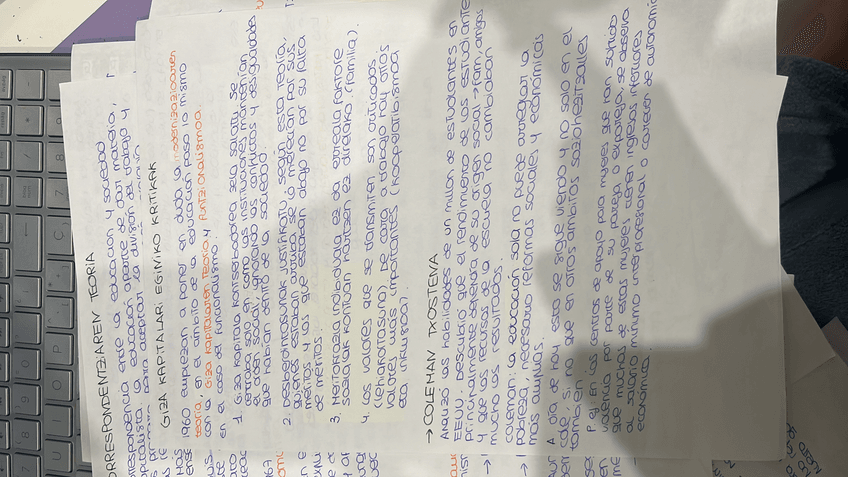 CORRESPONDENTZIAREN TEORIA
correspondencia entre la educación y sociedad
capitalista, la educación aparte de dar materia,
para aceptar la división del trabajo y
GIZA KAPITALARI EGINIKO KRITIKAK
1960 empiezan a poner en duda la modernizazioaren
teoria, en el ámbito de la educación pasó lo mismo
con la Giza kapitalaren teoria y funtzionalismoa.
en el caso de funcionalismo:
1. Giza kapitala kontserbadorea zela salatu. Se
centraba solo en como las instituciones mantenian
el orden social, ignorando los conflictos y desigualdades
que habían dentro de la sociedad.
2. Desberdintasunak justifikatu. Según esta teoría,
quienes estaban arriba se lo merecían por sus
méritos y los que estaban abajo no por su falta
de meritos.
3. Meritokrazia indibiduala ez da erreala (faktore
sozialak kontuan hartzen ez direlako, familia).
4. Los valores que se transmiten son anticuados
(lehiakortasuna). De cara a trabajo hay otros
valores mas importantes (kooperatibismoa
eta inklusioa).
→ COLEMAN TXOSTENA
Analizó las habilidades de un millon de estudiantes en
EEUU. Descubrió que el rendimiento de los estudiantes
principalmente dependía de su origen social → fam, amigos
y que los recursos de la escuela no cambiaban
mucho los resultados.
Coleman: la educación sola no puede arreglar la
pobreza, necesario reformas sociales y económicas
más amplias.
A día de hoy esto se sigue viendo y no solo en el
cole, si no que en otros ámbitos soziohezitzailles
también.
P. ej: En los centros de apoyo para mujeres que han sufrido
violencia por parte de su pareja o expareja, se observa
que muchas de estas mujeres tienen ingresos inferiores
al salario mínimo interprofesional o carecen de autonomía
económica.